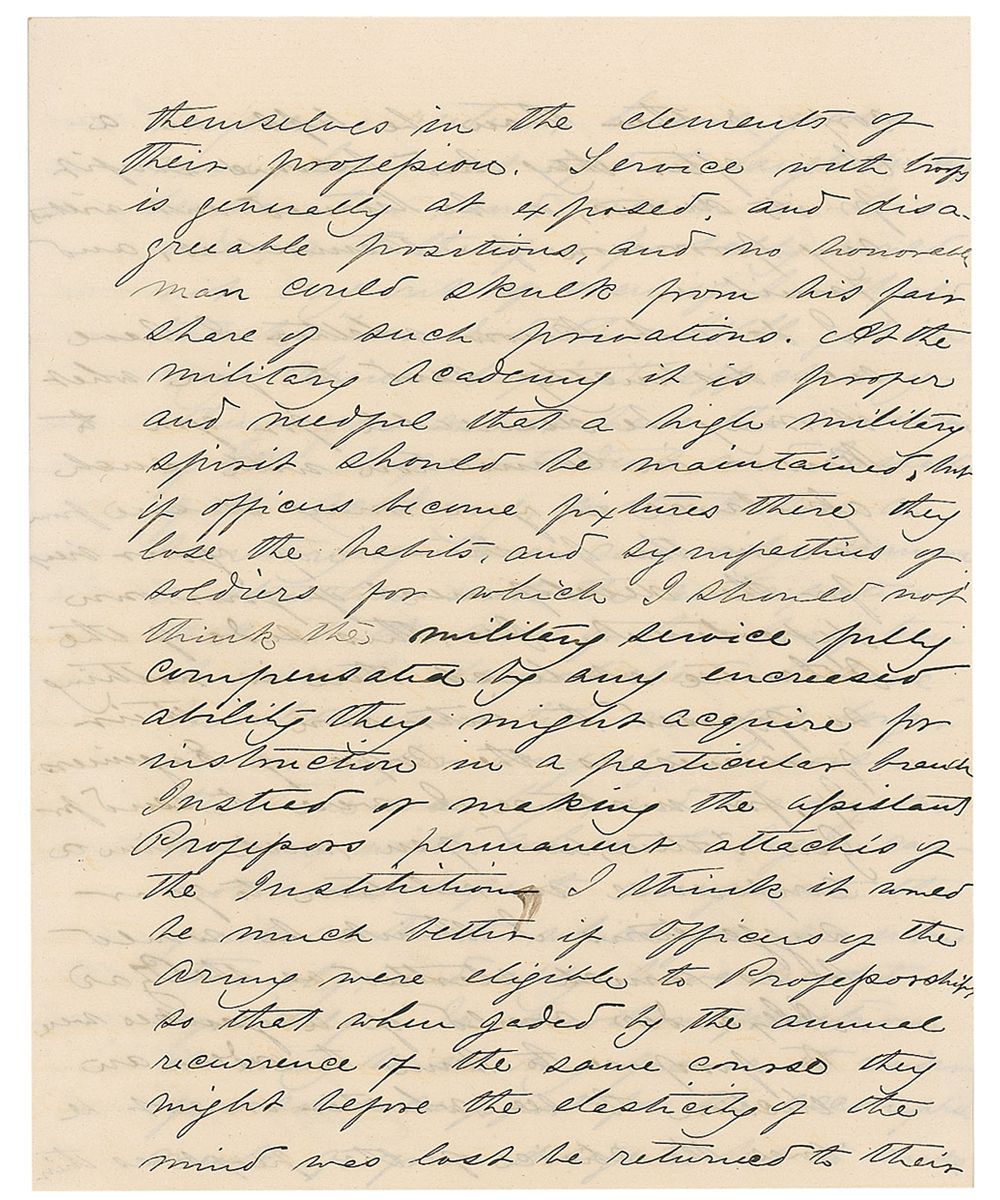 themselves in the elements of
their profession. Service with troops
is generally at exposed, and disa-
greeable positions, and no honorable
man could skulk from his fair
share of such privations. At the
military Academy it is proper
and needful that a high military
spirit should be maintained, but
if officers become fixtures there they
lose the habits, and sympathies of
soldiers for which I should not
think the military service fully
compensated by any encreased
ability they might acquire for
instruction in a particular branch
Instead of making the assistant
Professors permanent attachés of
the Institution I think it would
be much better if Officers of the
Army were eligible to Professorships,
so that when jaded by the annual
recurrence of the same course they
might before the elasticity of the
mind was lost be returned to their